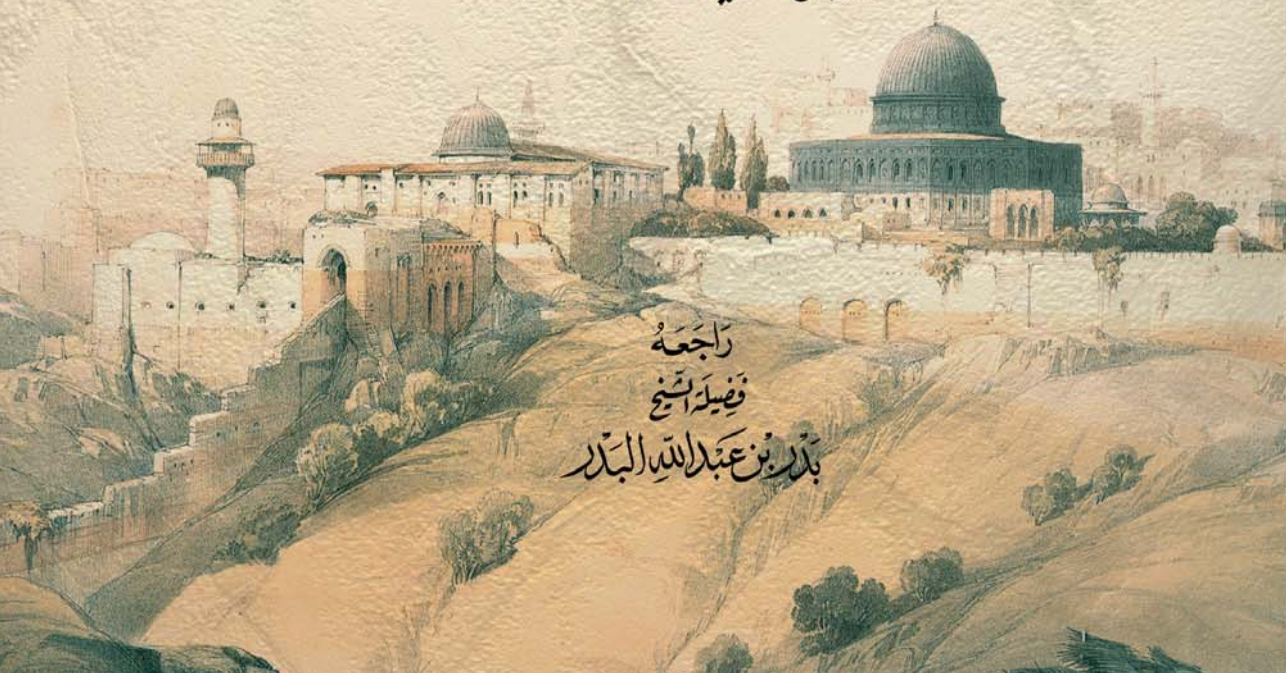 رَاجَعَهُ
فَضِيلَة الشَّيْخ
بَدْر بْن عَبْد اللّٰه البَدْر